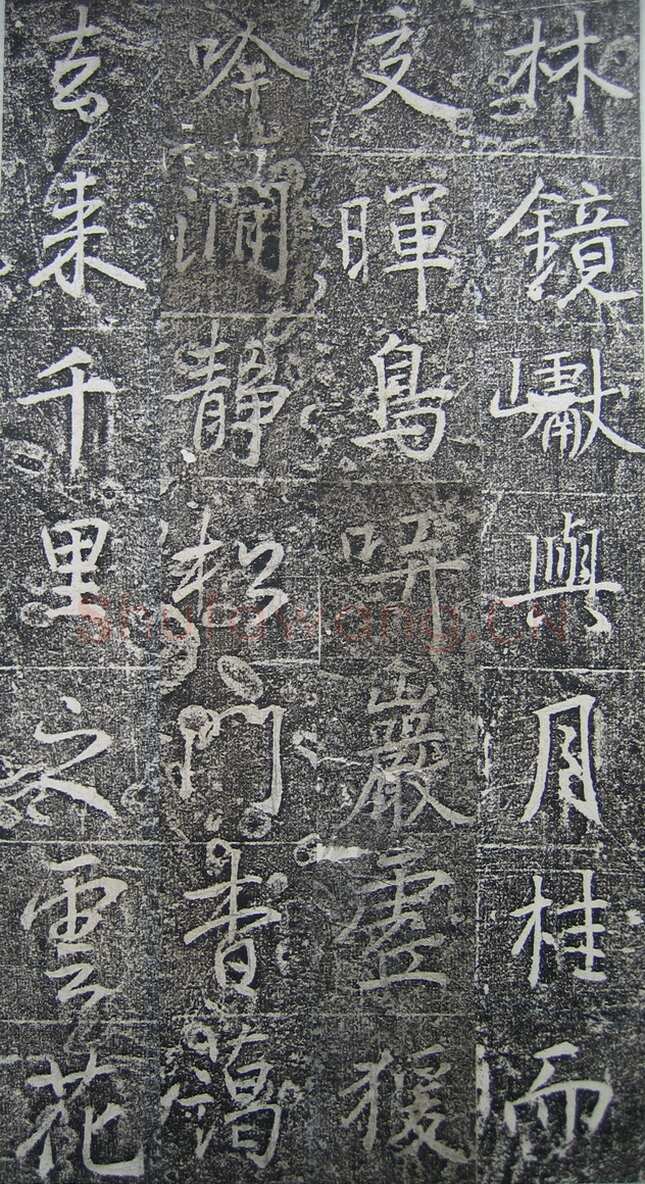 林鏡巘與月桂而
交暉鳥哢巖虛猨
吟澗靜松門杳
去來千里之雲花
Shufawang.CN